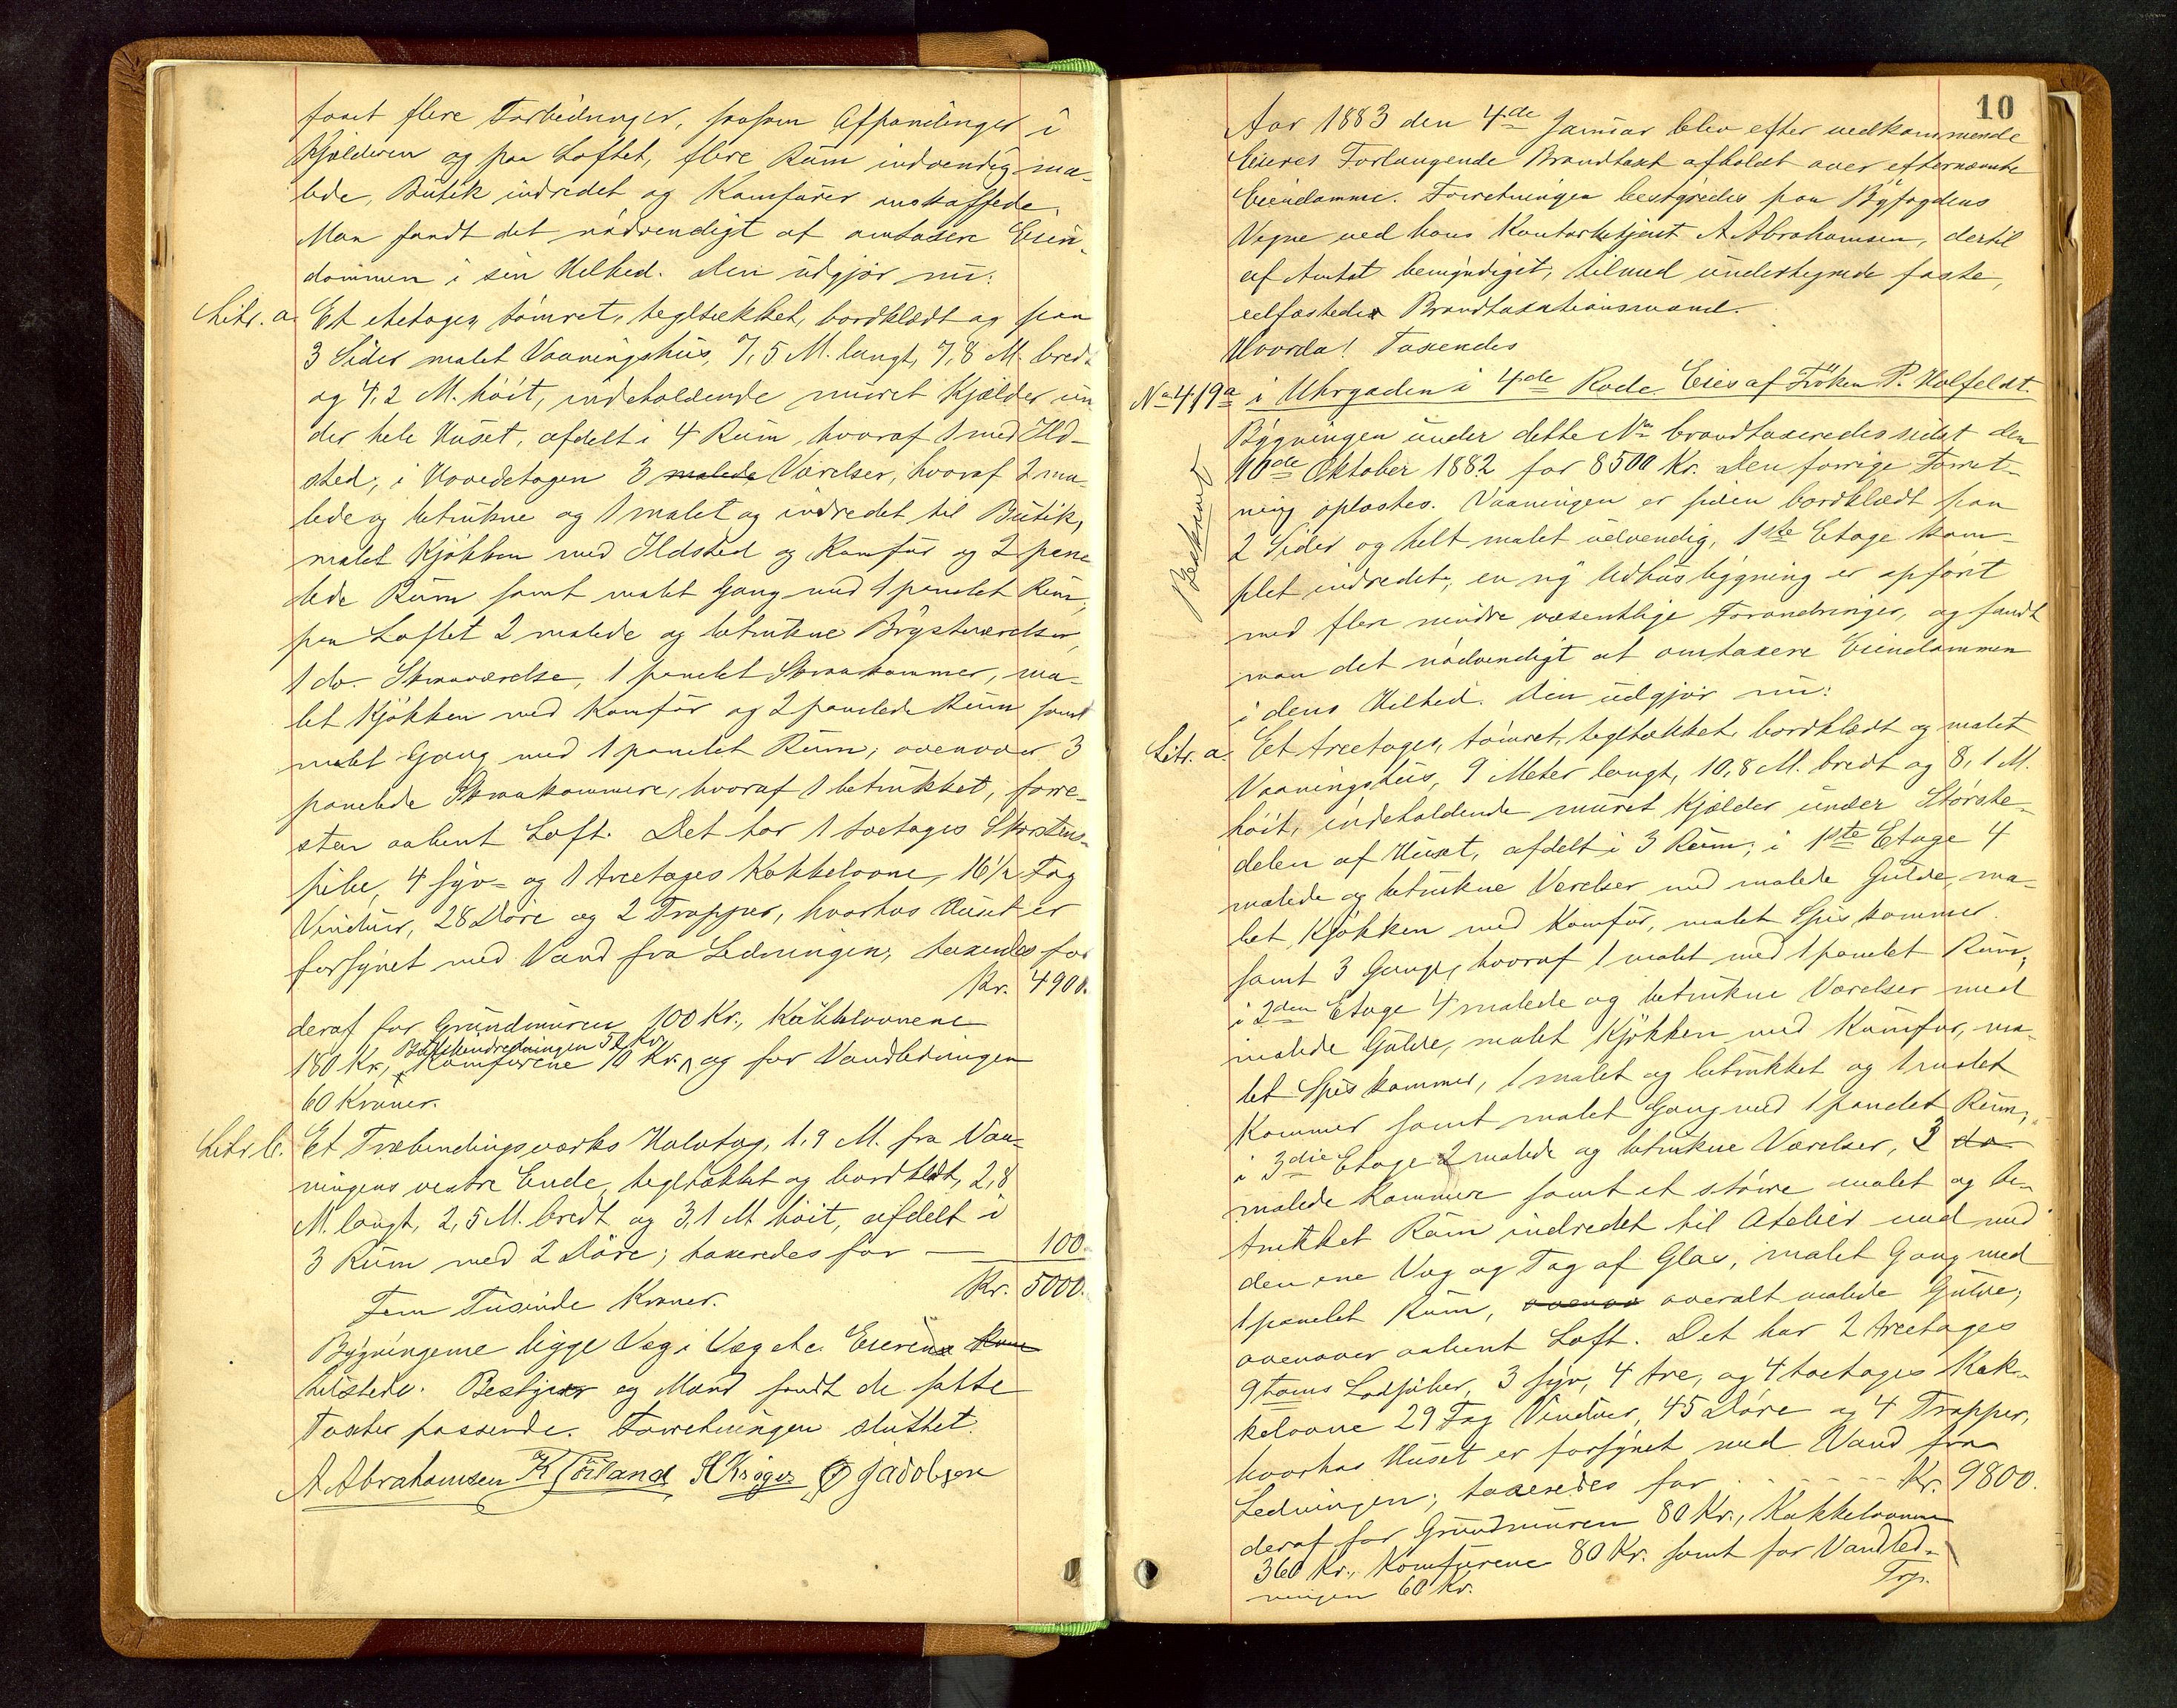 faaet flere Forbedringer, saasom Afpanelinger i
Kjælderen og paa Loftet, flere Rum indvendig ma-
lede, Butik indredet og Komfurer anskaffede.
Man fandt det nödvendigt at omtaxere Eien-
dommen i sin Helhed. Den udgjör nu:
Litr. a. Et etetages tömret, tegltækket, bordklædt og paa
3 Sider malet Vaaningshus, 7,5 M. langt, 7,8 M. bredt
og 4,2 M. höit, indeholdende muret Kjælder un-
der hele Huset, afdelt i 4 Rum, hvoraf 1 med Ild-
sted; i Hovedetagen 3 malede Værelser, hvoraf 2 ma-
lede og betrukne og 1 malet og indredet til Butik,
malet Kjökken med Ildsted og Komfur og 2 pane-
lede Rum samt malet Gang med 1 panelet Rum;
paa Loftet 2 malede og betrukne Brystværelser,
1 do. Skraaværelse, 1 panelet Skraakammer, ma-
let Kjökken med Komfur og 2 panelede Rum samt
malet Gang med 1 panelet Rum; ovenover 3
panelede Skraakammere, hvoraf 1 betrukket, forre-
sten aabent Loft. Det har 1 toetages Skorstens-
pibe, 4 fyr- og 1 treetages Kakkelovne, 16½ Fag
Vinduer, 28 Döre og 2 Trapper, hvorhos Huset er
forsynet med Vand fra Ledningen; taxeredes for
Kr. 4900.
deraf for Grundmuren 100 Kr., Kakkelovnene
Butikindredningen 50 Kr.
180 Kr., Komfurene 70 Kr., og for Vandledningen
60 Kroner.
Litr. b. Et Træbindingsværks Halvtag, 1,9 M. fra Vaa-
ningens vestre Ende, tegltækket og bordklædt, 2,8
M. langt, 2,5 M. bredt og 3,1 M höit, afdelt i
3 Rum med 2 Döre; taxeredes for — 100.
Fem Tusinde Kroner. Kr. 5000.
Bygningerne ligge Væg i Væg etc. Eieren
tilstede. Bestyrer og Mænd fandt de satte
Taxter passende. Forretningen sluttet.
A Abrahamsen K Sörland S Kröger O Jacobsen
10
Aar 1883 den 4de Januar blev efter vedkommende
Eieres Forlangende Brandtaxt afholdt over efternævnte
Eiendomme. Forretningen bestyredes paa Byfogdens
Vegne ved hans Kontorbetjent A Abrahamsen, dertil
af Amtet bemyndiget, tilmed undertegnede faste,
edfæstede Brandtaxationsmænd.
Hvorda! Taxeredes
No 419a i Uhrgaden i 4de Rode. Eies af Fröken P. Holfeldt.
Beskrevet
Bygningen under dette No brandtaxeredes sidst den
10de Oktober 1882 for 8500 Kr. Den forrige Forret-
ning oplæstes. Vaaningen er siden bordklædt paa
2 Sider og helt malet udvendig, 1ste Etage kom-
plet indredet, en ny Udhusbygning er opfört
med flere mindre væsentlige Forandringer, og fandt
man det nödvendigt at omtaxere Eiendommen
i dens Helhed. Den udgjör nu:
Litr. a. Et treetages, tömret, tegltækket, bordklædt og malet
Vaaningshus, 9 Meter langt, 10,8 M. bredt og 8,1 M.
höit, indeholdende muret Kjælder under Störste-
delen af Huset, afdelt i 3 Rum; i 1ste Etage 4
malede og betrukne Værelser med malede Gulve, ma-
let Kjökken med Komfur, malet Spiskammer
samt 3 Gange, hvoraf 1 malet med 1 panelet Rum;
i 2den Etage 4 malede og betrukne Værelser med
malede Gulve, malet Kjökken med Komfur, ma-
let Spiskammer, 1 malet og betrukket og 1 malet
Kammer samt malet Gang med 1 panelet Rum;
i 3die Etage 2 malede og betrukne Værelser, 3 do
malede Kammere samt et större malet og be-
trukket Rum indredet til Atelier med
den ene Væg og Tag af Glas, malet Gang med
1 panelet Rum, ovenov overalt malede Gulve;
ovenover aabent Loft. Det har 2 treetages
9toms Lodpiber, 3 fyr, 4 tre, og 4 toetages Kak-
kelovne 29 Fag Vinduer, 45 Döre og 4 Trapper,
hvorhos Huset er forsynet med Vand fra
Ledningen; taxeredes for - - - - - Kr. 9800.
deraf for Grundmuren 80 Kr., Kakkelovnene
360 Kr., Komfurene 80 Kr. samt for Vandled-
ningen 60 Kr.